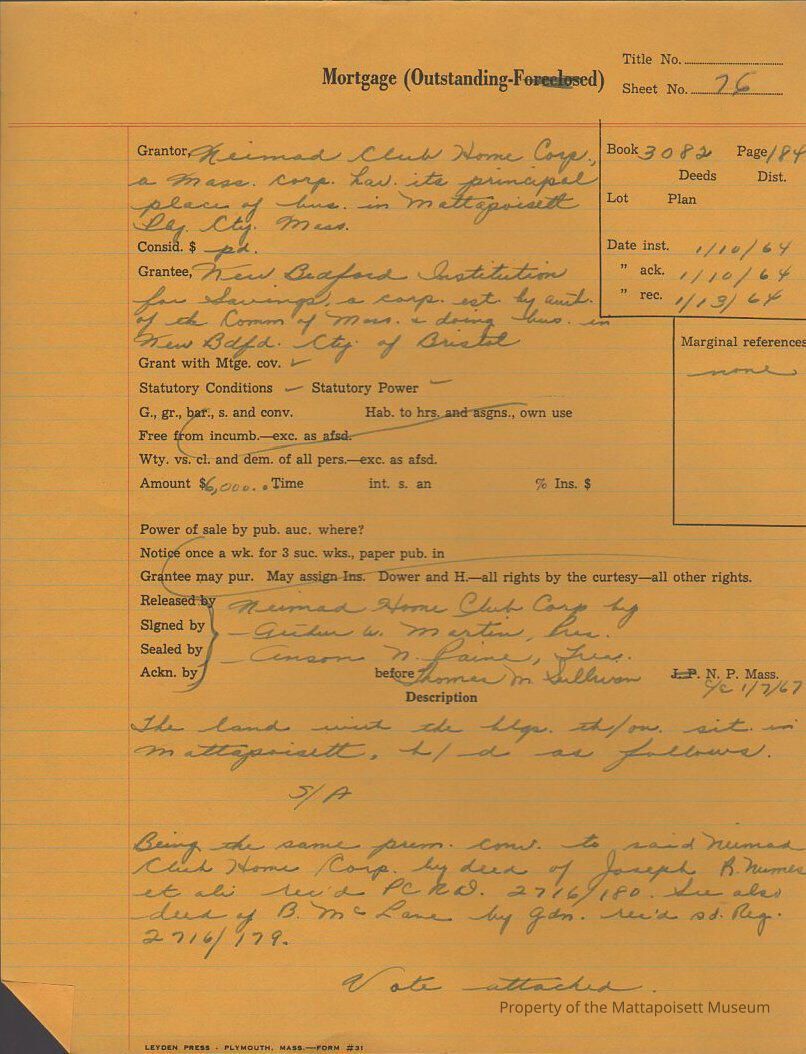 Mortgage (Outstanding-Foreclosed)
Title No.
Sheet No. 76
Grantor, Neimad Club Home Corp.,
a Mass. corp. hav. its principal
place of bus. in Mattapoisett
Ply. Cty. Mass.
Book 3082 Page 184
Deeds Dist.
Lot Plan
Consid. $ pd.
Date inst. 1/10/64
" ack. 1/10/64
" rec. 1/13/64
Grantee, New Bedford Institution
for Savings, a corp. est. by auth.
of the Comm of Mass. & doing bus. in
New Bdfd. Cty. of Bristol
Marginal references
none
Grant with Mtge. cov. ✓
Statutory Conditions ✓ Statutory Power ✓
G., gr., bar., s. and conv. Hab. to hrs. and asgns., own use
Free from incumb.—exc. as afsd.
Wty. vs. cl. and dem. of all pers.—exc. as afsd.
Amount $6,000.. Time int. s. an % Ins. $
Power of sale by pub. auc. where?
Notice once a wk. for 3 suc. wks., paper pub. in
Grantee may pur. May assign Ins. Dower and H.—all rights by the curtesy—all other rights.
Released by Neimad Home Club Corp by
Signed by W. Martin, Pres.
Sealed by Anson N. Paine, Treas.
Ackn. by before Thomas M. Sullivan J. P. N. P. Mass.
c/e 1/7/67
Description
The land with the blgs. th/on. sit. in
Mattapoisett, b/d as follows.
S/A
Being the same prem. conv. to said Neimad
Club Home Corp. by deed of Joseph R. Nunes
et ali rec'd PCRD. 2716/180. See also
deed of B. McLane by gdn. rec'd sd. Reg.
2716/179.
Vote attached.
Property of the Mattapoisett Museum
LEYDEN PRESS - PLYMOUTH, MASS.—FORM #31